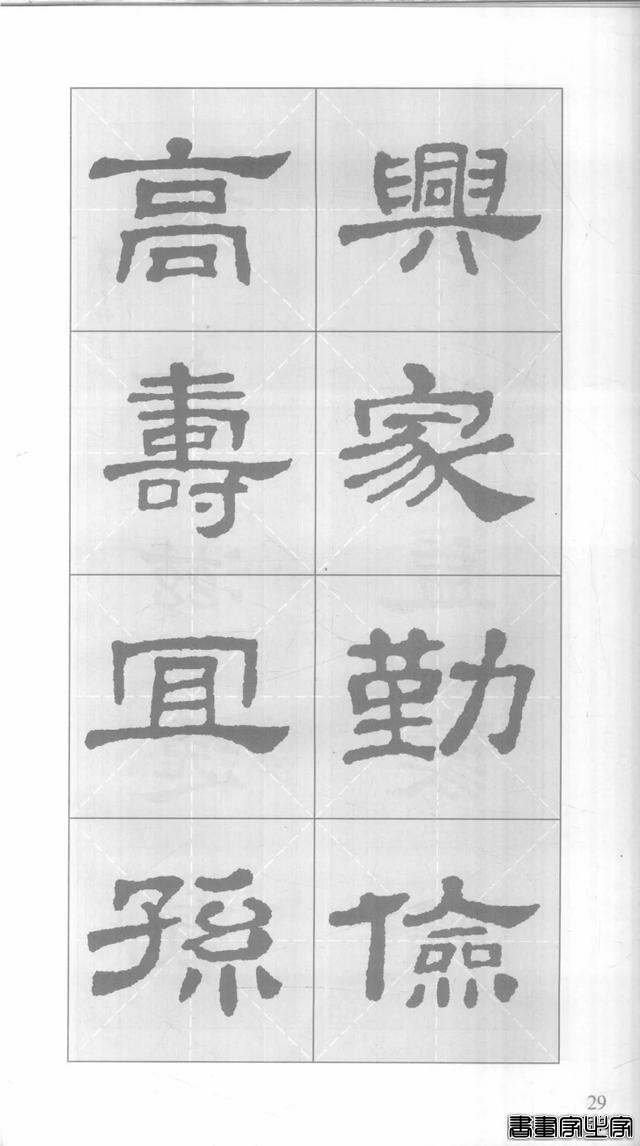 興家勤儉
高壽宜孫
29
書畫家之家